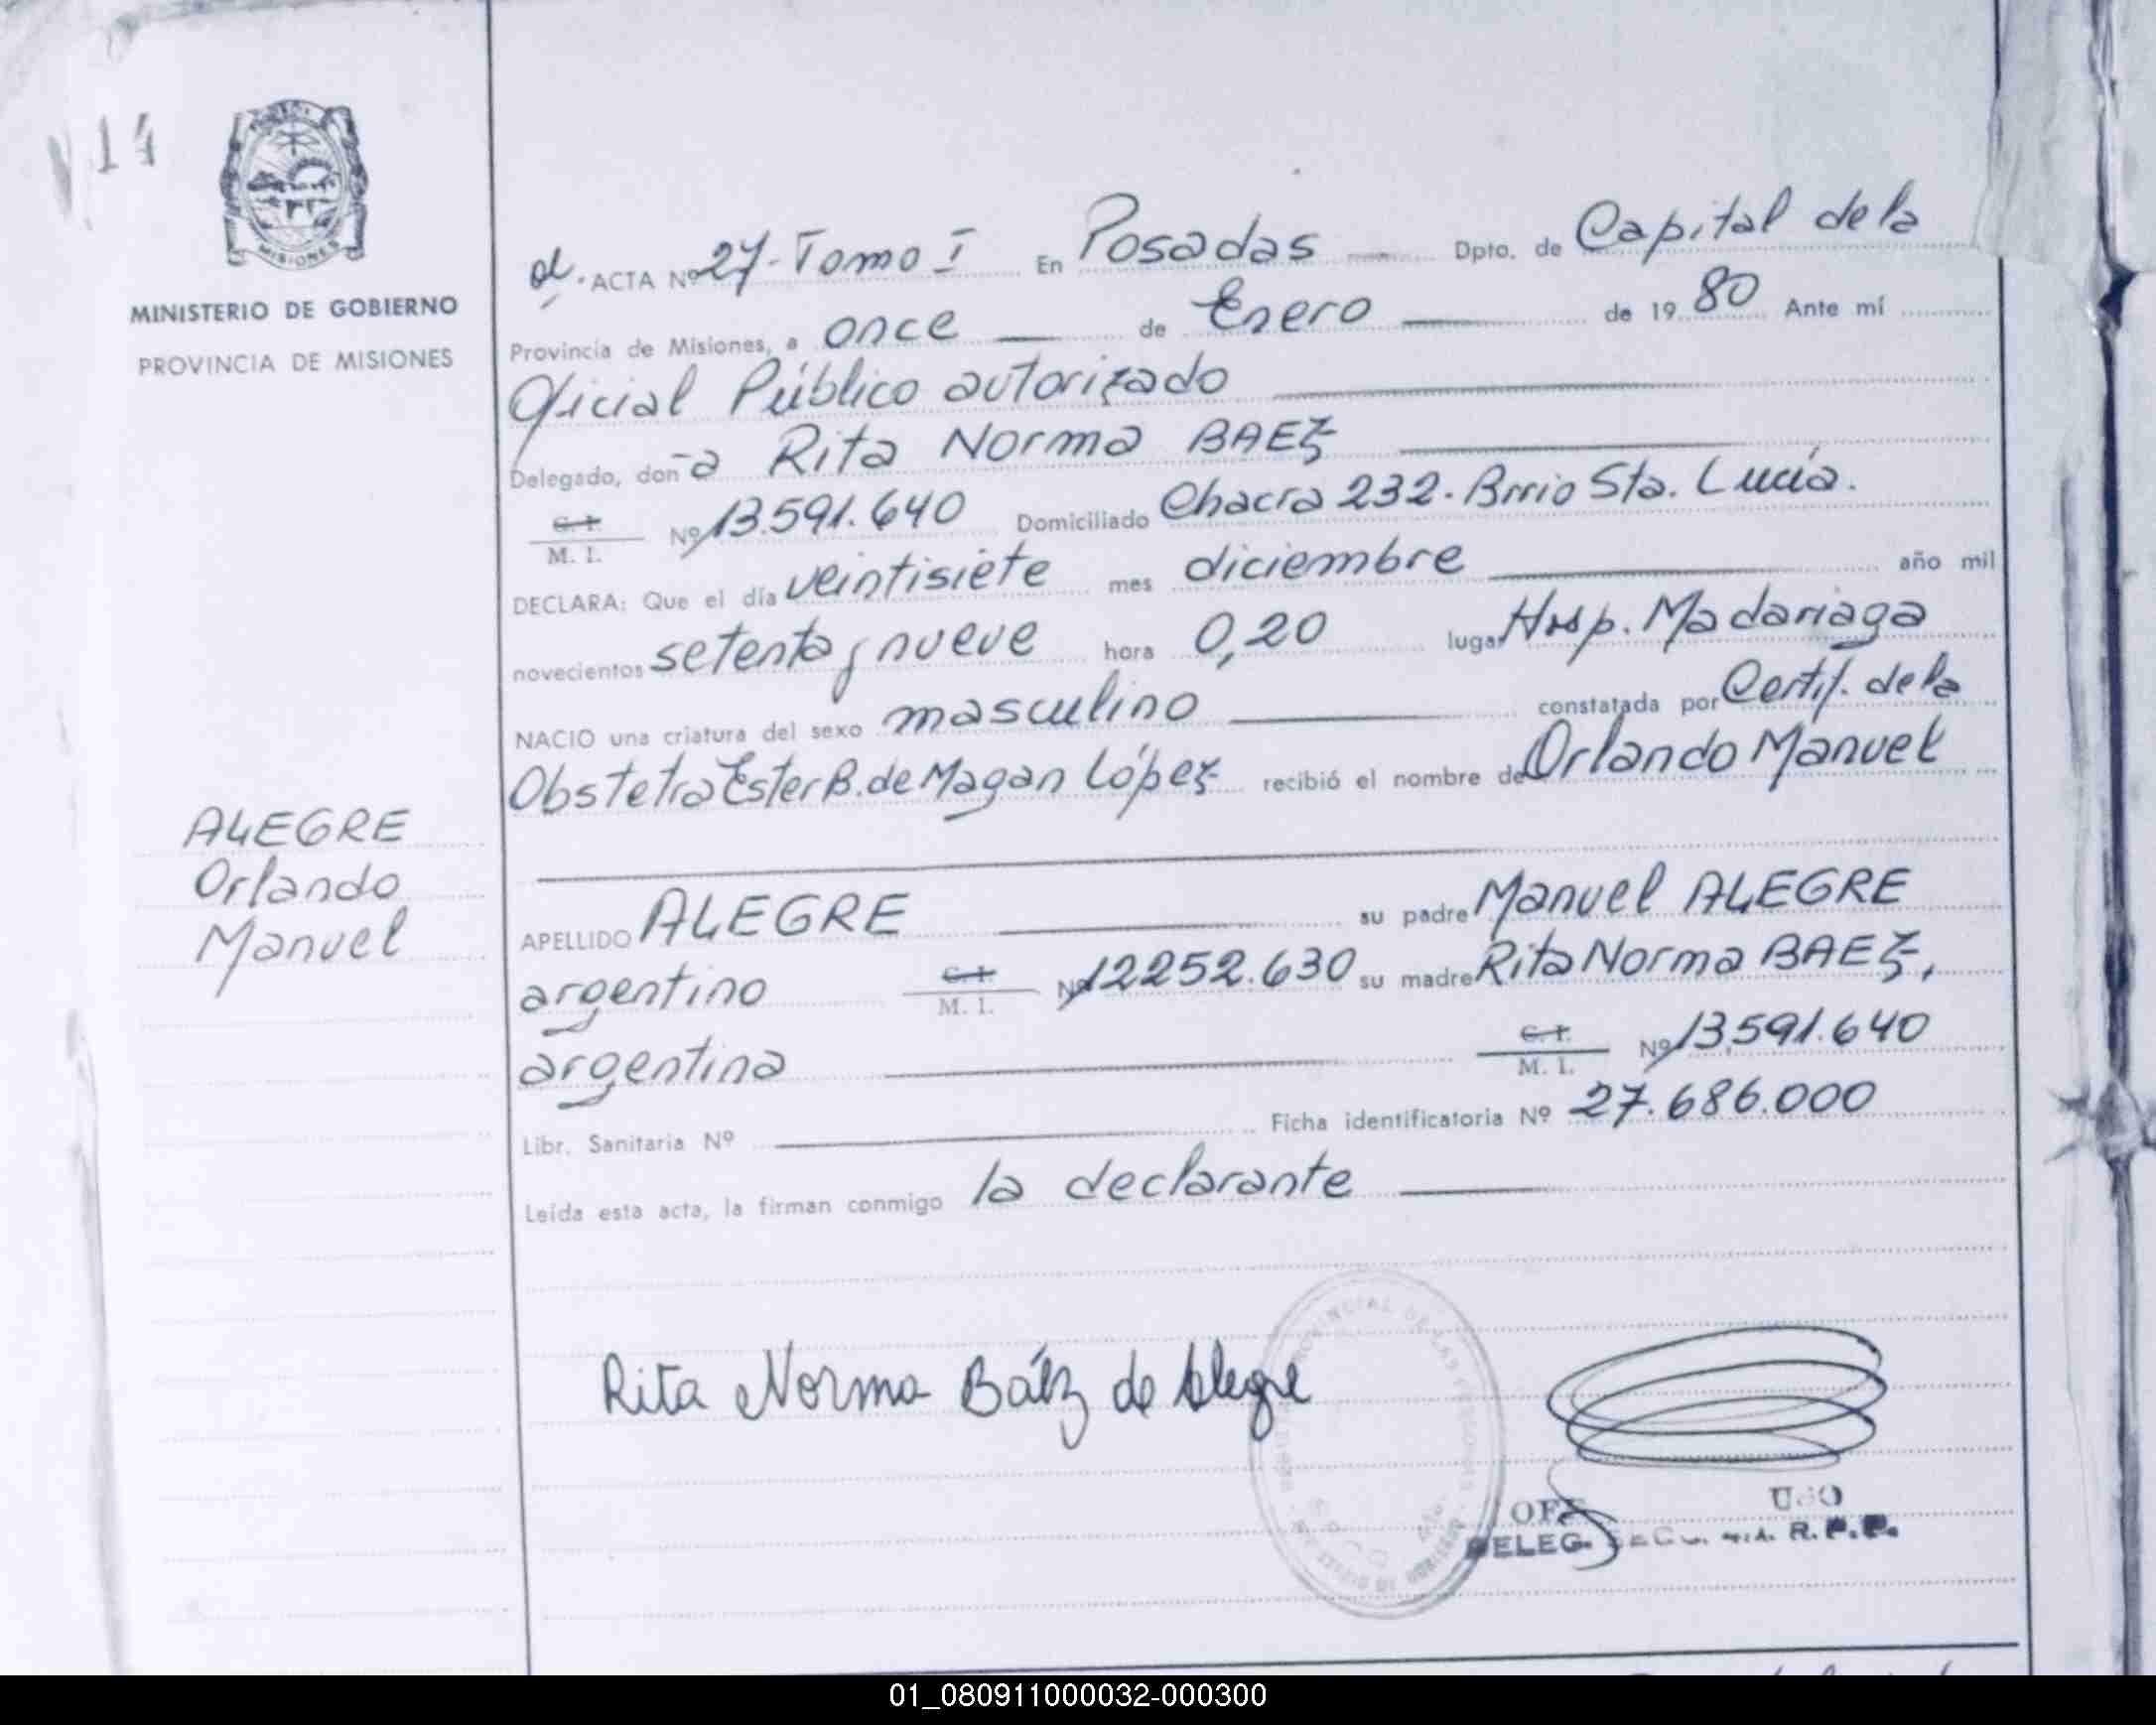 14
MISIONES
MINISTERIO DE GOBIERNO
PROVINCIA DE MISIONES
ALEGRE
Orlando
Manuel
ACTA Nº 27 - Tomo I En Posadas Dpto. de Capital de la
Provincia de Misiones, a once de Enero de 1980 Ante mí
Oficial Público autorizado
Delegado, don-a Rita Norma BAEZ
C. I.
M. I. Nº 13.591.640 Domiciliado Chacra 232. Brrio Sta. Lucía.
DECLARA: Que el día veintisiete mes diciembre año mil
novecientos setenta y nueve hora 0,20 lugar Hosp. Madariaga
NACIO una criatura del sexo masculino constatada por Certif. de la
Obstetra Ester B. de Magan López recibió el nombre de Orlando Manuel
APELLIDO ALEGRE su padre Manuel ALEGRE
argentino C. I. M. I. Nº 12252.630 su madre Rita Norma BAEZ,
argentina C. I. M. I. Nº 13,591.640
Libr. Sanitaria Nº Ficha identificatoria Nº 27.686.000
Leída esta acta, la firman conmigo la declarante
Rita Norma Báez de Alegre
PROVINCIAL DE LAS
DELEG. R. P. P.
01_080911000032-000300